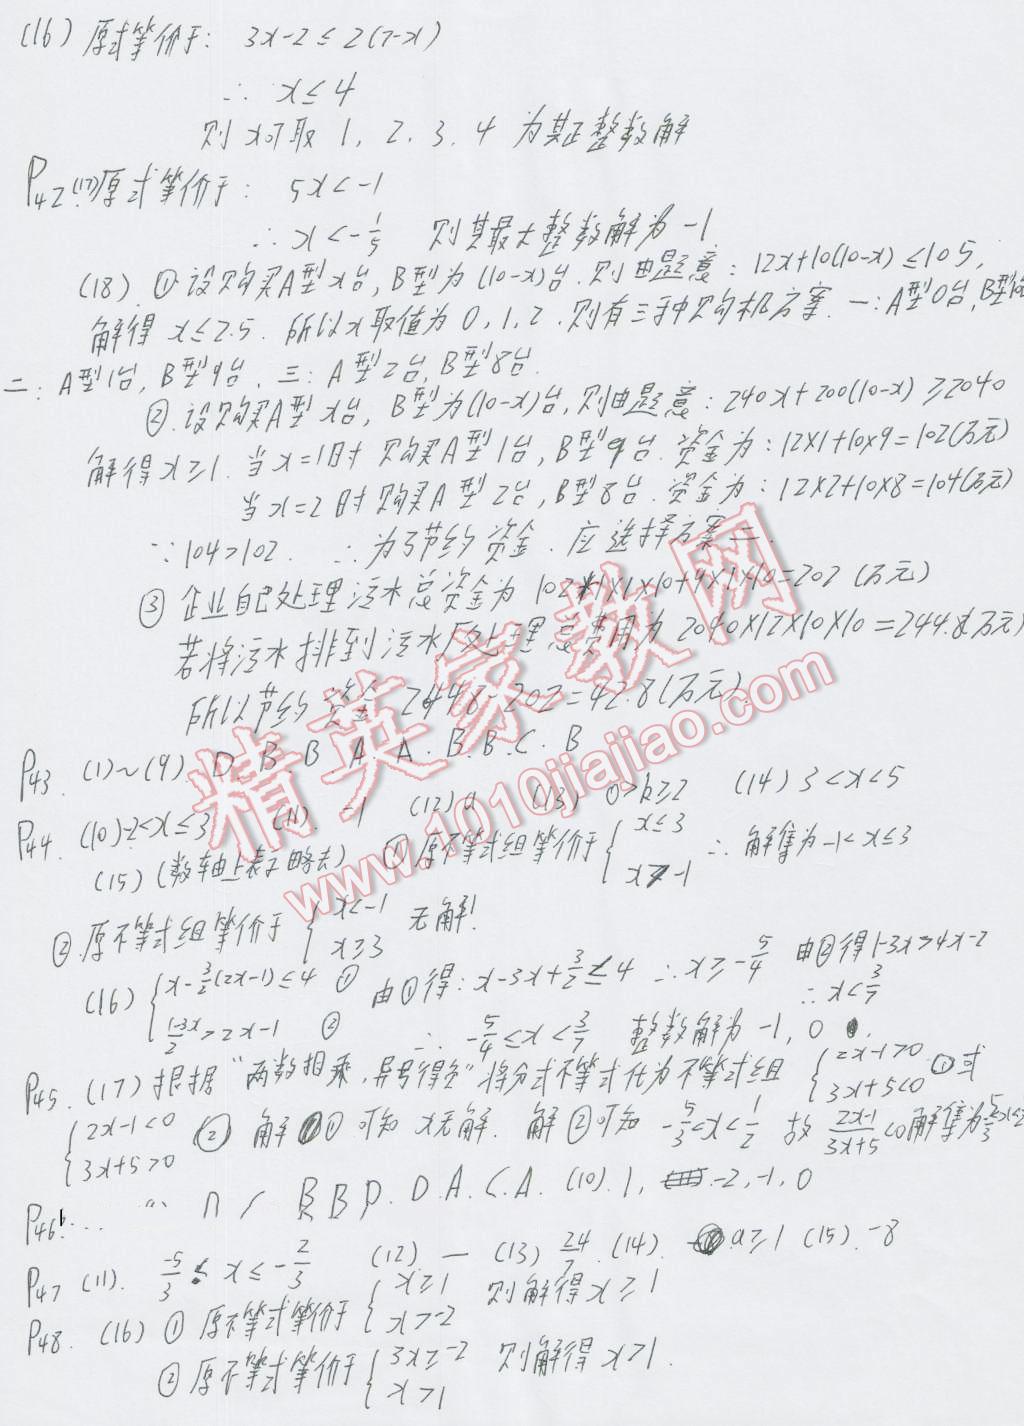 (16) 原式等价于: 3x-2≤2(7-x)
∴ x≤4
则 x可取 1, 2, 3, 4 为其正整数解
P42 (17) 原式等价于: 5x<-1
∴ x<-1/5 则其最大整数解为 -1
(18) ① 设购买A型x台, B型为(10-x)台. 则由题意: 12x+10(10-x)≤105,
解得 x≤2.5. 所以x取值为 0, 1, 2. 则有三种购机方案. 一: A型0台, B型
二: A型1台, B型9台. 三: A型2台, B型8台.
②. 设购买A型x台, B型为(10-x)台, 则由题意: 240x+200(10-x)≥2040
解得 x≥1. 当x=1时 购买A型1台, B型9台. 资金为: 12×1+10×9=102(万元)
当x=2时 购买A型2台, B型8台. 资金为: 12×2+10×8=104(万元)
∵ 104>102. ∴ 为了节约资金. 应选择方案二.
③ 企业自己处理污水总资金为 102+1×1×10+9×1×10=202 (万元)
若将污水排到污水厂处理总费用为 2040×12×10×10=244.8(万元)
所以节约资金 244.8-202=42.8(万元)
P43. (1)~(9) D. B. B A. A. B. B. C. B
P44. (10) -2<x≤3 (11). -1 (12) a (13) 0>k≥2 (14) 3<x<5
(15) (数轴上表示略去) ① 原不等式组等价于 { x≤3 x>-1 ∴ 解集为 -1<x≤3
②. 原不等式组等价于 { x<-1 x≥3 无解!
(16) { x-3/2(2x-1)≤4 ① (1-3x)/2>2x-1 ② 由①得: x-3x+3/2≤4 ∴ x≥-5/4 由②得1-3x>4x-2 ∴ x<3/7
∴ -5/4≤x<3/7 整数解为 -1, 0
P45. (17) 根据 "两数相乘, 异号得负" 将分式不等式化为不等式组 { 2x-1>0 3x+5<0 ① 或
{ 2x-1<0 3x+5>0 ② 解①可知 x无解. 解②可知 -5/3<x<1/2 故 (2x-1)/(3x+5)<0解集为
P46. B B D. D. A. C. A. (10). 1, -2, -1, 0
P47 (11). -5/3≤x≤-2/3 (12) 一 (13) 24/7. (14). a≥1 (15). -8
P48. (16) ① 原不等式等价于 { x≥1 x>-2 则解得 x≥1
② 原不等式等价于 { 3x≥-2 x>1 则解得 x>1.
精英家教网
www.1010jiajiao.com